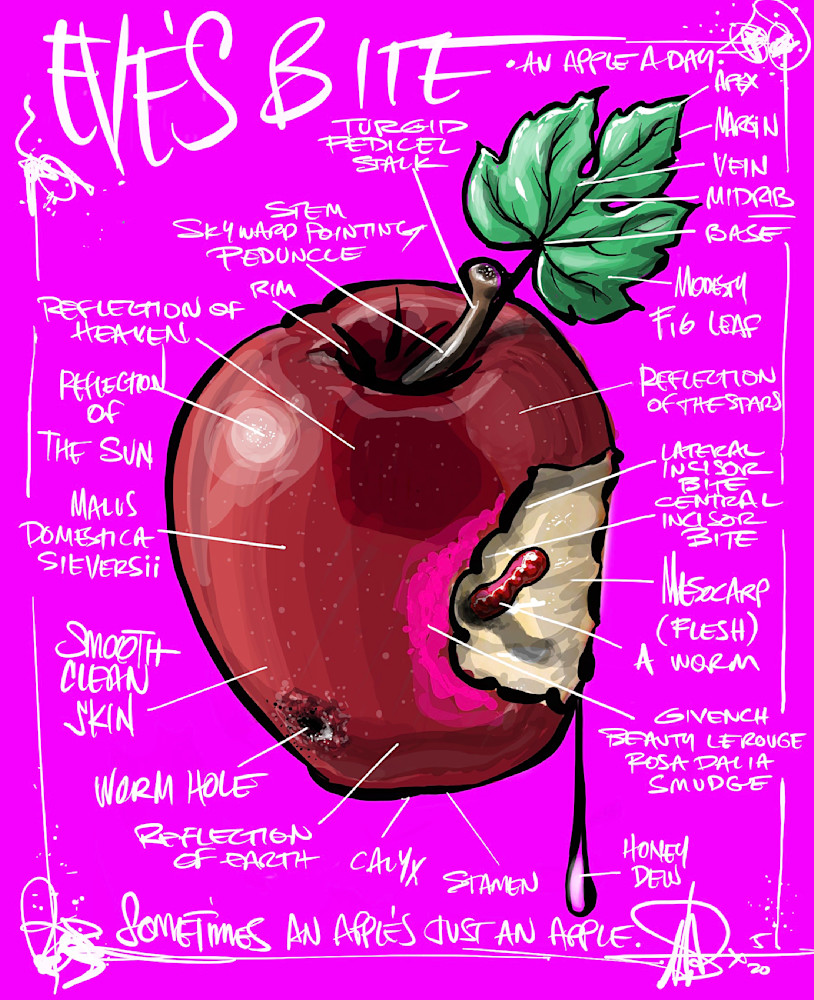 EVE'S BITE
• AN APPLE A DAY.
APEX
MARGIN
VEIN
MIDRIB
BASE
MODESTY
FIG LEAF
TURGID
PEDICEL
STALK
STEM
SKYWARD POINTING
PEDUNCLE
RIM
REFLECTION OF
HEAVEN
REFLECTION
OF
THE SUN
REFLECTION
OF THE STARS
LATERAL
INCISOR
BITE
CENTRAL
INCISOR
BITE
MALUS
DOMESTICA
SIEVERSii
MESOCARP
(FLESH)
A WORM
SMOOTH
CLEAN
SKIN
GIVENCH
BEAUTY LE ROUGE
ROSA DALIA
SMUDGE
WORM HOLE
REFLECTION
OF EARTH
CALYX
STAMEN
HONEY
DEW
SOMETIMES AN APPLE'S JUST AN APPLE.
5
20